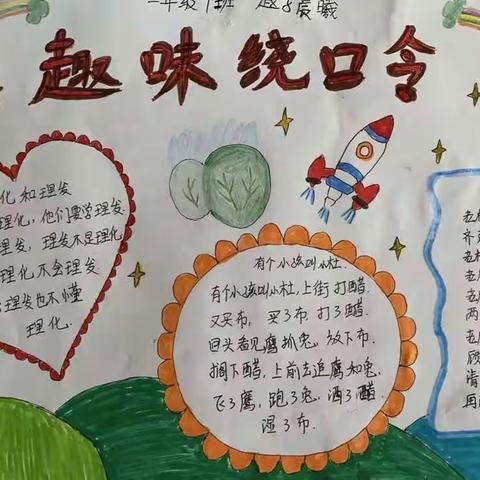 年级1班
趣味绕口令
化和理发
理化,他们要学理发.
理发,理发不是理化
理化不会理发
理发也不懂
理化.
有个小孩叫小杜.
有个小孩叫小杜,上街打醋.
又买布,买了布,打了醋.
回头看见鹰抓兔,放下布.
搁下醋,上前去追鹰和兔,
飞了鹰,跑了兔,洒了醋.
湿了布.